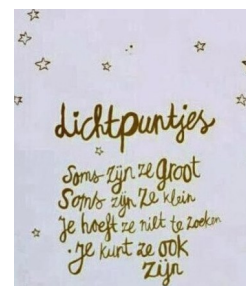 Lichtpuntjes
Soms zijn ze groot
Soms zijn ze klein
Je hoeft ze niet te zoeken
.Je kunt ze ook
zijn